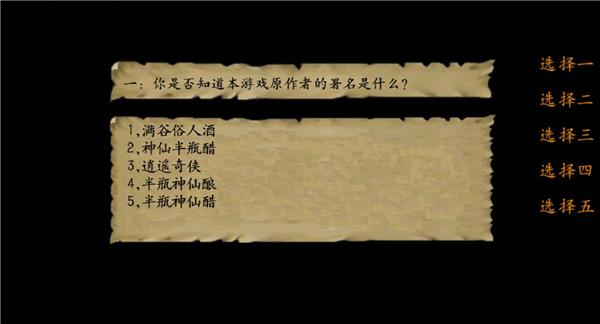 一：你是否知道本游戏原作者的署名是什么？
1,满谷俗人酒
2,神仙半瓶醋
3,逍遥奇侠
4,半瓶神仙酿
5,半瓶神仙醋
选择一
选择二
选择三
选择四
选择五